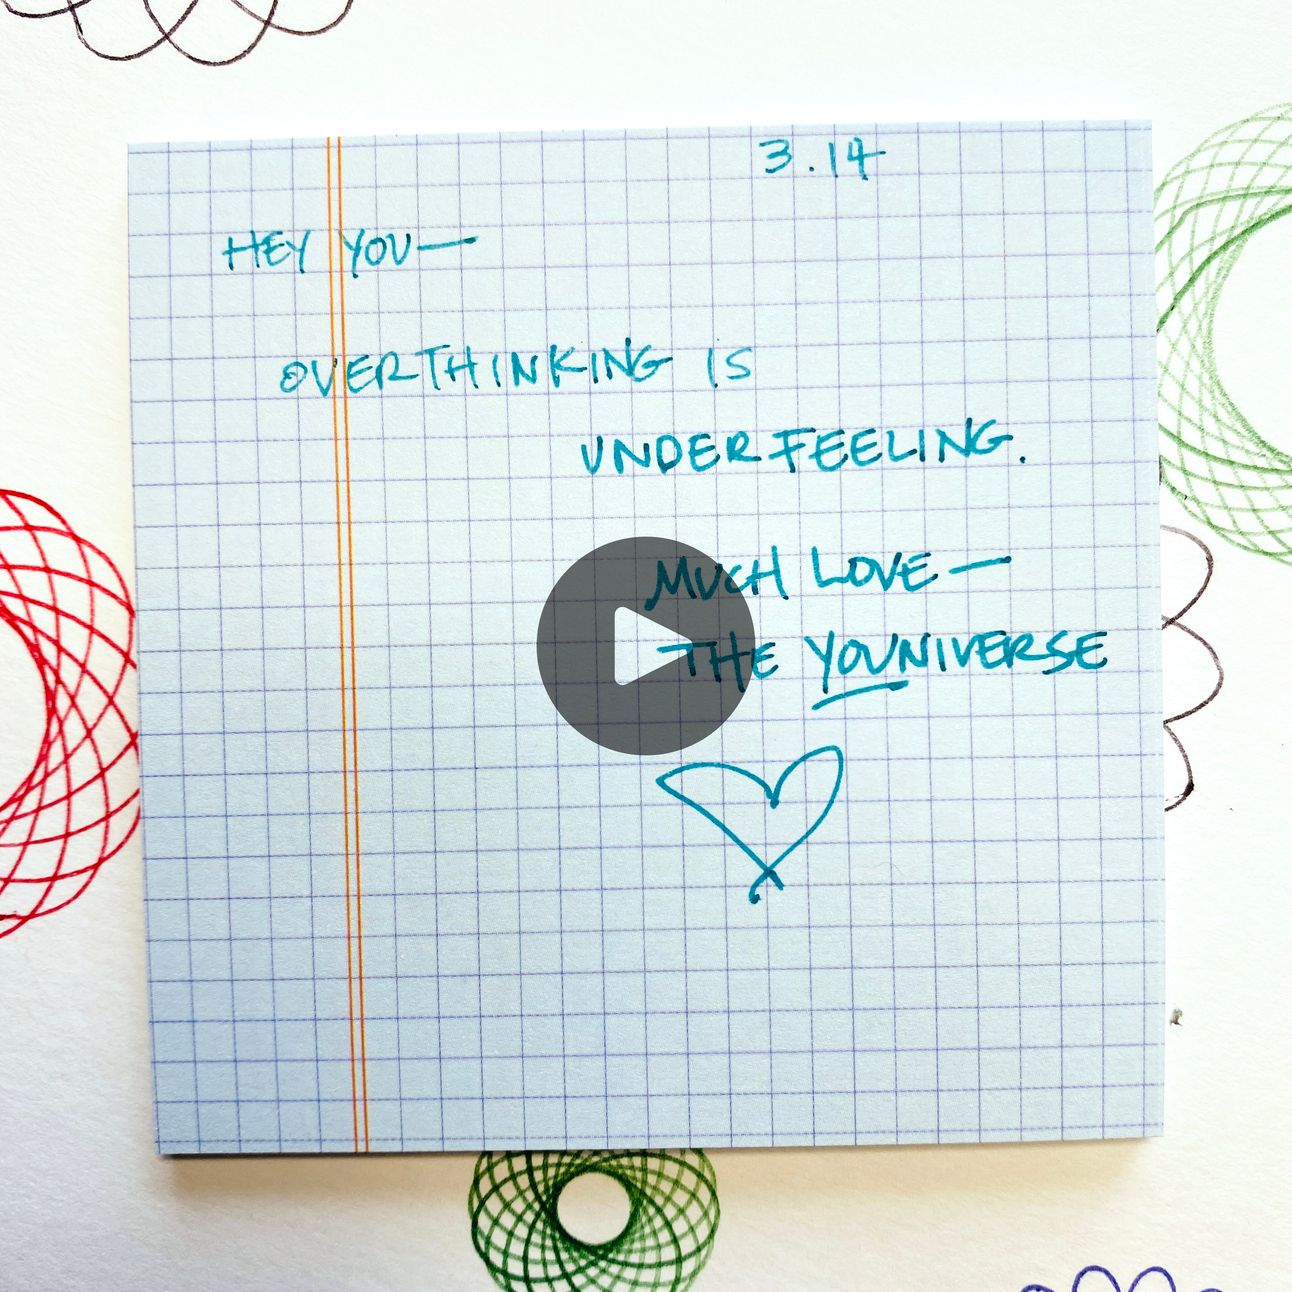 3.14
HEY YOU—
OVERTHINKING IS
UNDERFEELING.
MUCH LOVE—
THE YOUNIVERSE